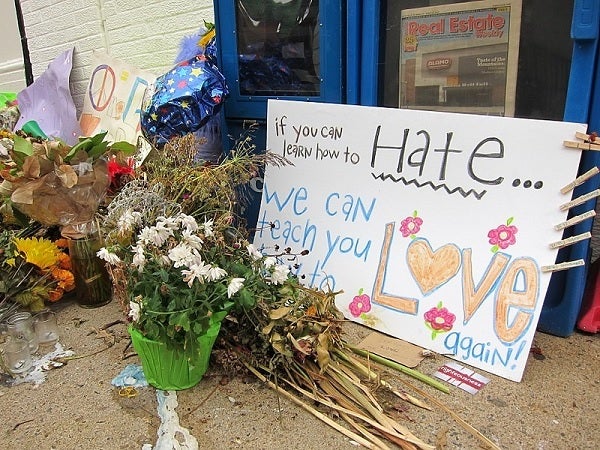 Real Estate
Weekly
ALAMO
Taste of the
Mountains
if you can
learn how to Hate...
We can
teach you
to Love
again!
righteousness